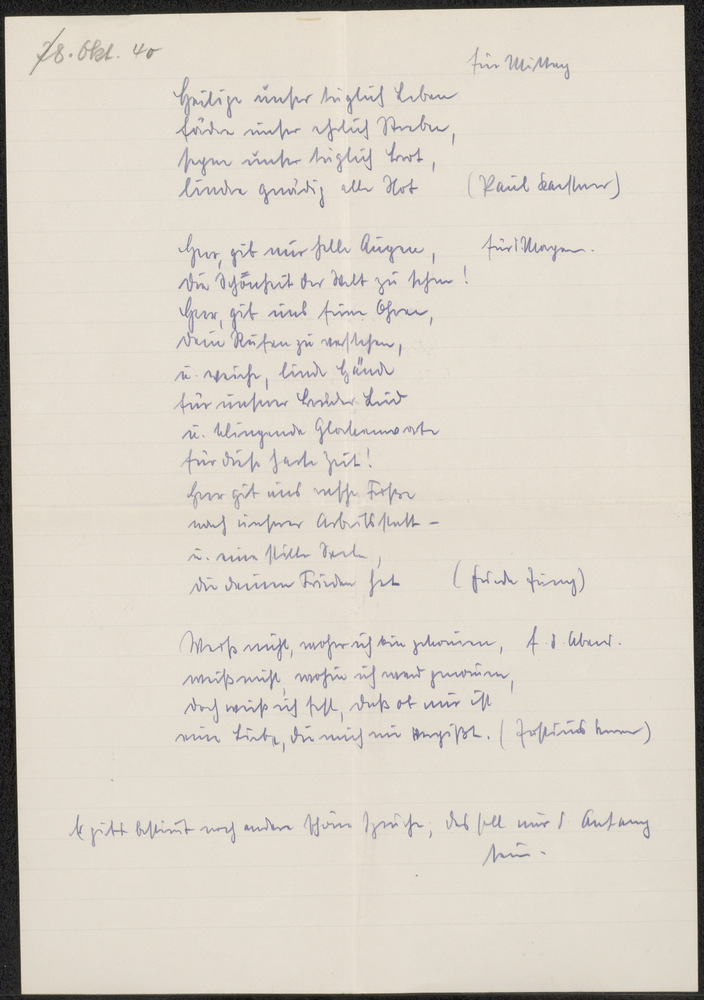 8. Okt. 40
für Mittag
Heilige unser täglich Leben
fördre unser ehrlich Streben,
segne unser täglich Brot,
lindre gnädig alle Not (Paul Kaestner)
Herr, gib mir helle Augen, für Morgen.
die Schönheit der Welt zu sehen!
Herr, gib uns feine Ohren,
dein Rufen zu verstehen,
u. weiche, linde Hände
für unserer Brüder Leid
u. klingende Glockenworte
für diese harte Zeit!
Herr gib uns rasche Füsse
nach unserer Arbeitsstatt –
u. eine stille Seele,
die deinen Frieden hat (Friede Jung)
Weiß nicht, woher ich bin gekommen, f. d. Abend.
weiß nicht, wohin ich werd genommen,
doch weiß ich fest, daß ob mir ist
eine Liebe, die mich nie vergißt. (Justinus Kerner)
Es gibt bestimmt noch andere schöne Sprüche; das soll nur d Anfang
sein.